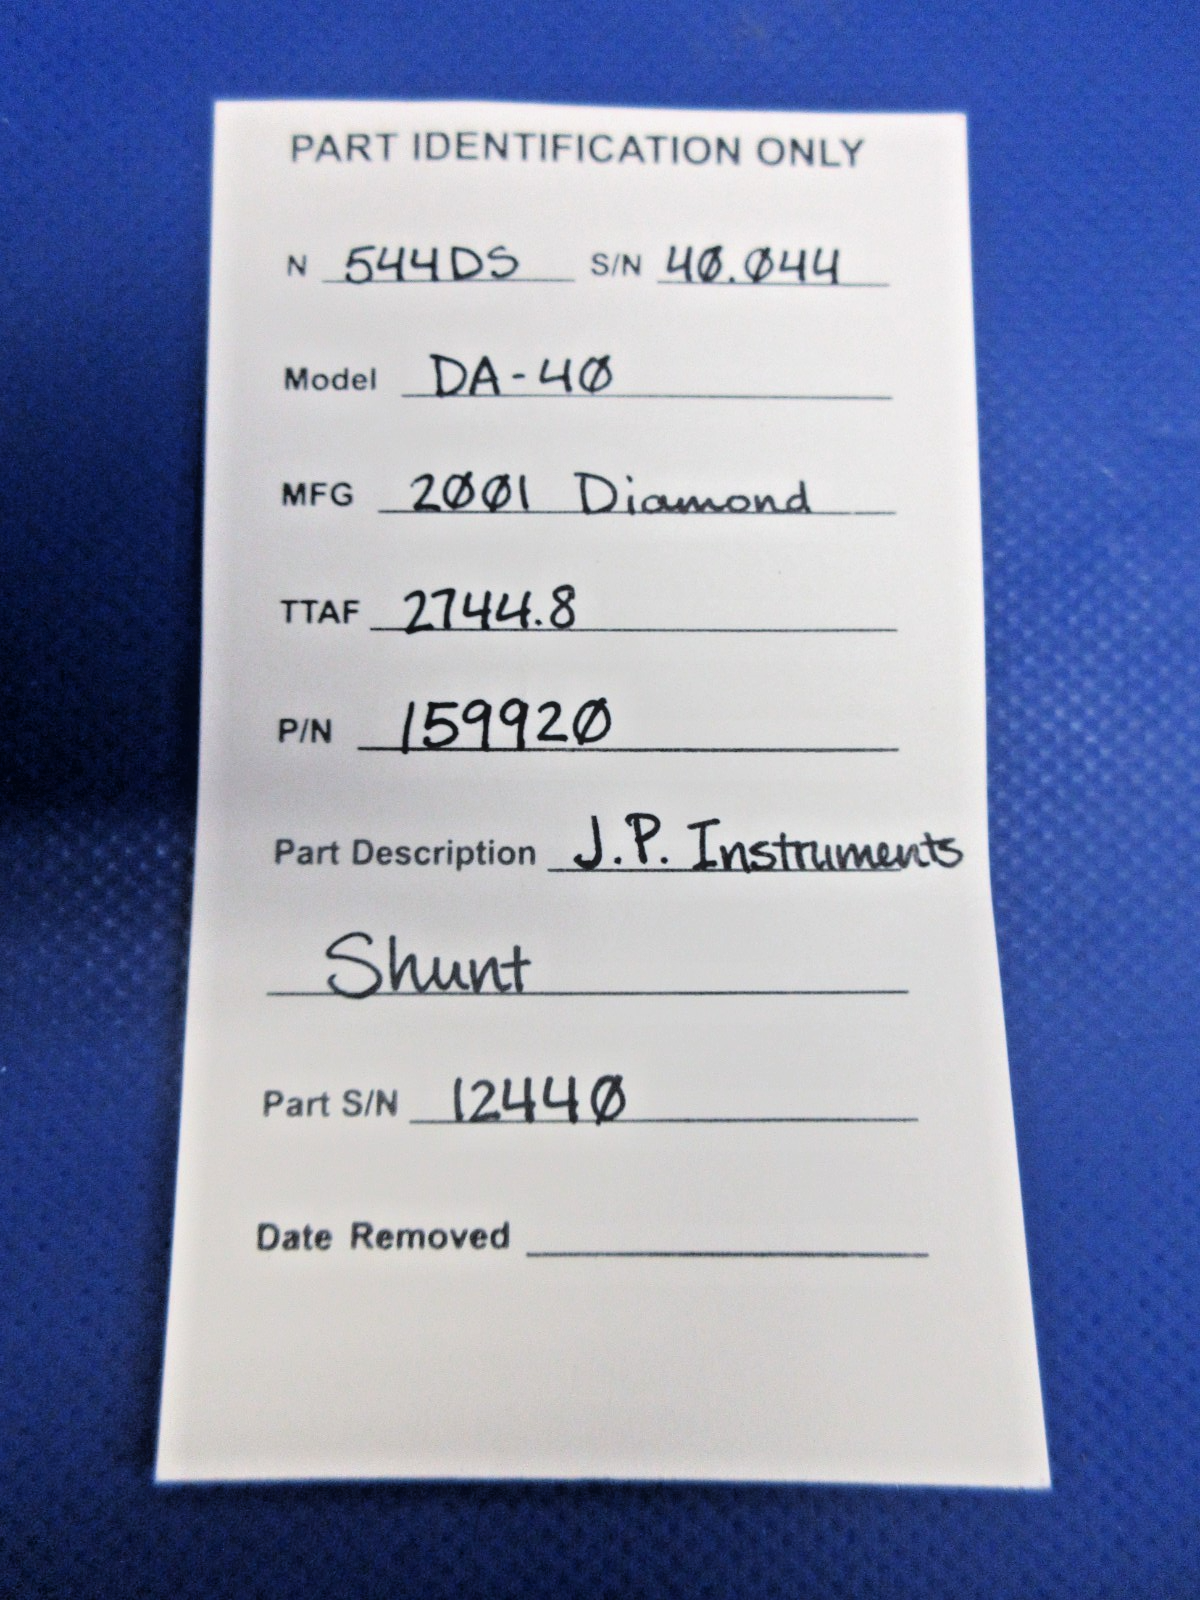 PART IDENTIFICATION ONLY
N 544DS S/N 40.044
Model DA-40
MFG 2001 Diamond
TTAF 2744.8
P/N 159920
Part Description J.P. Instruments
Shunt
Part S/N 12440
Date Removed